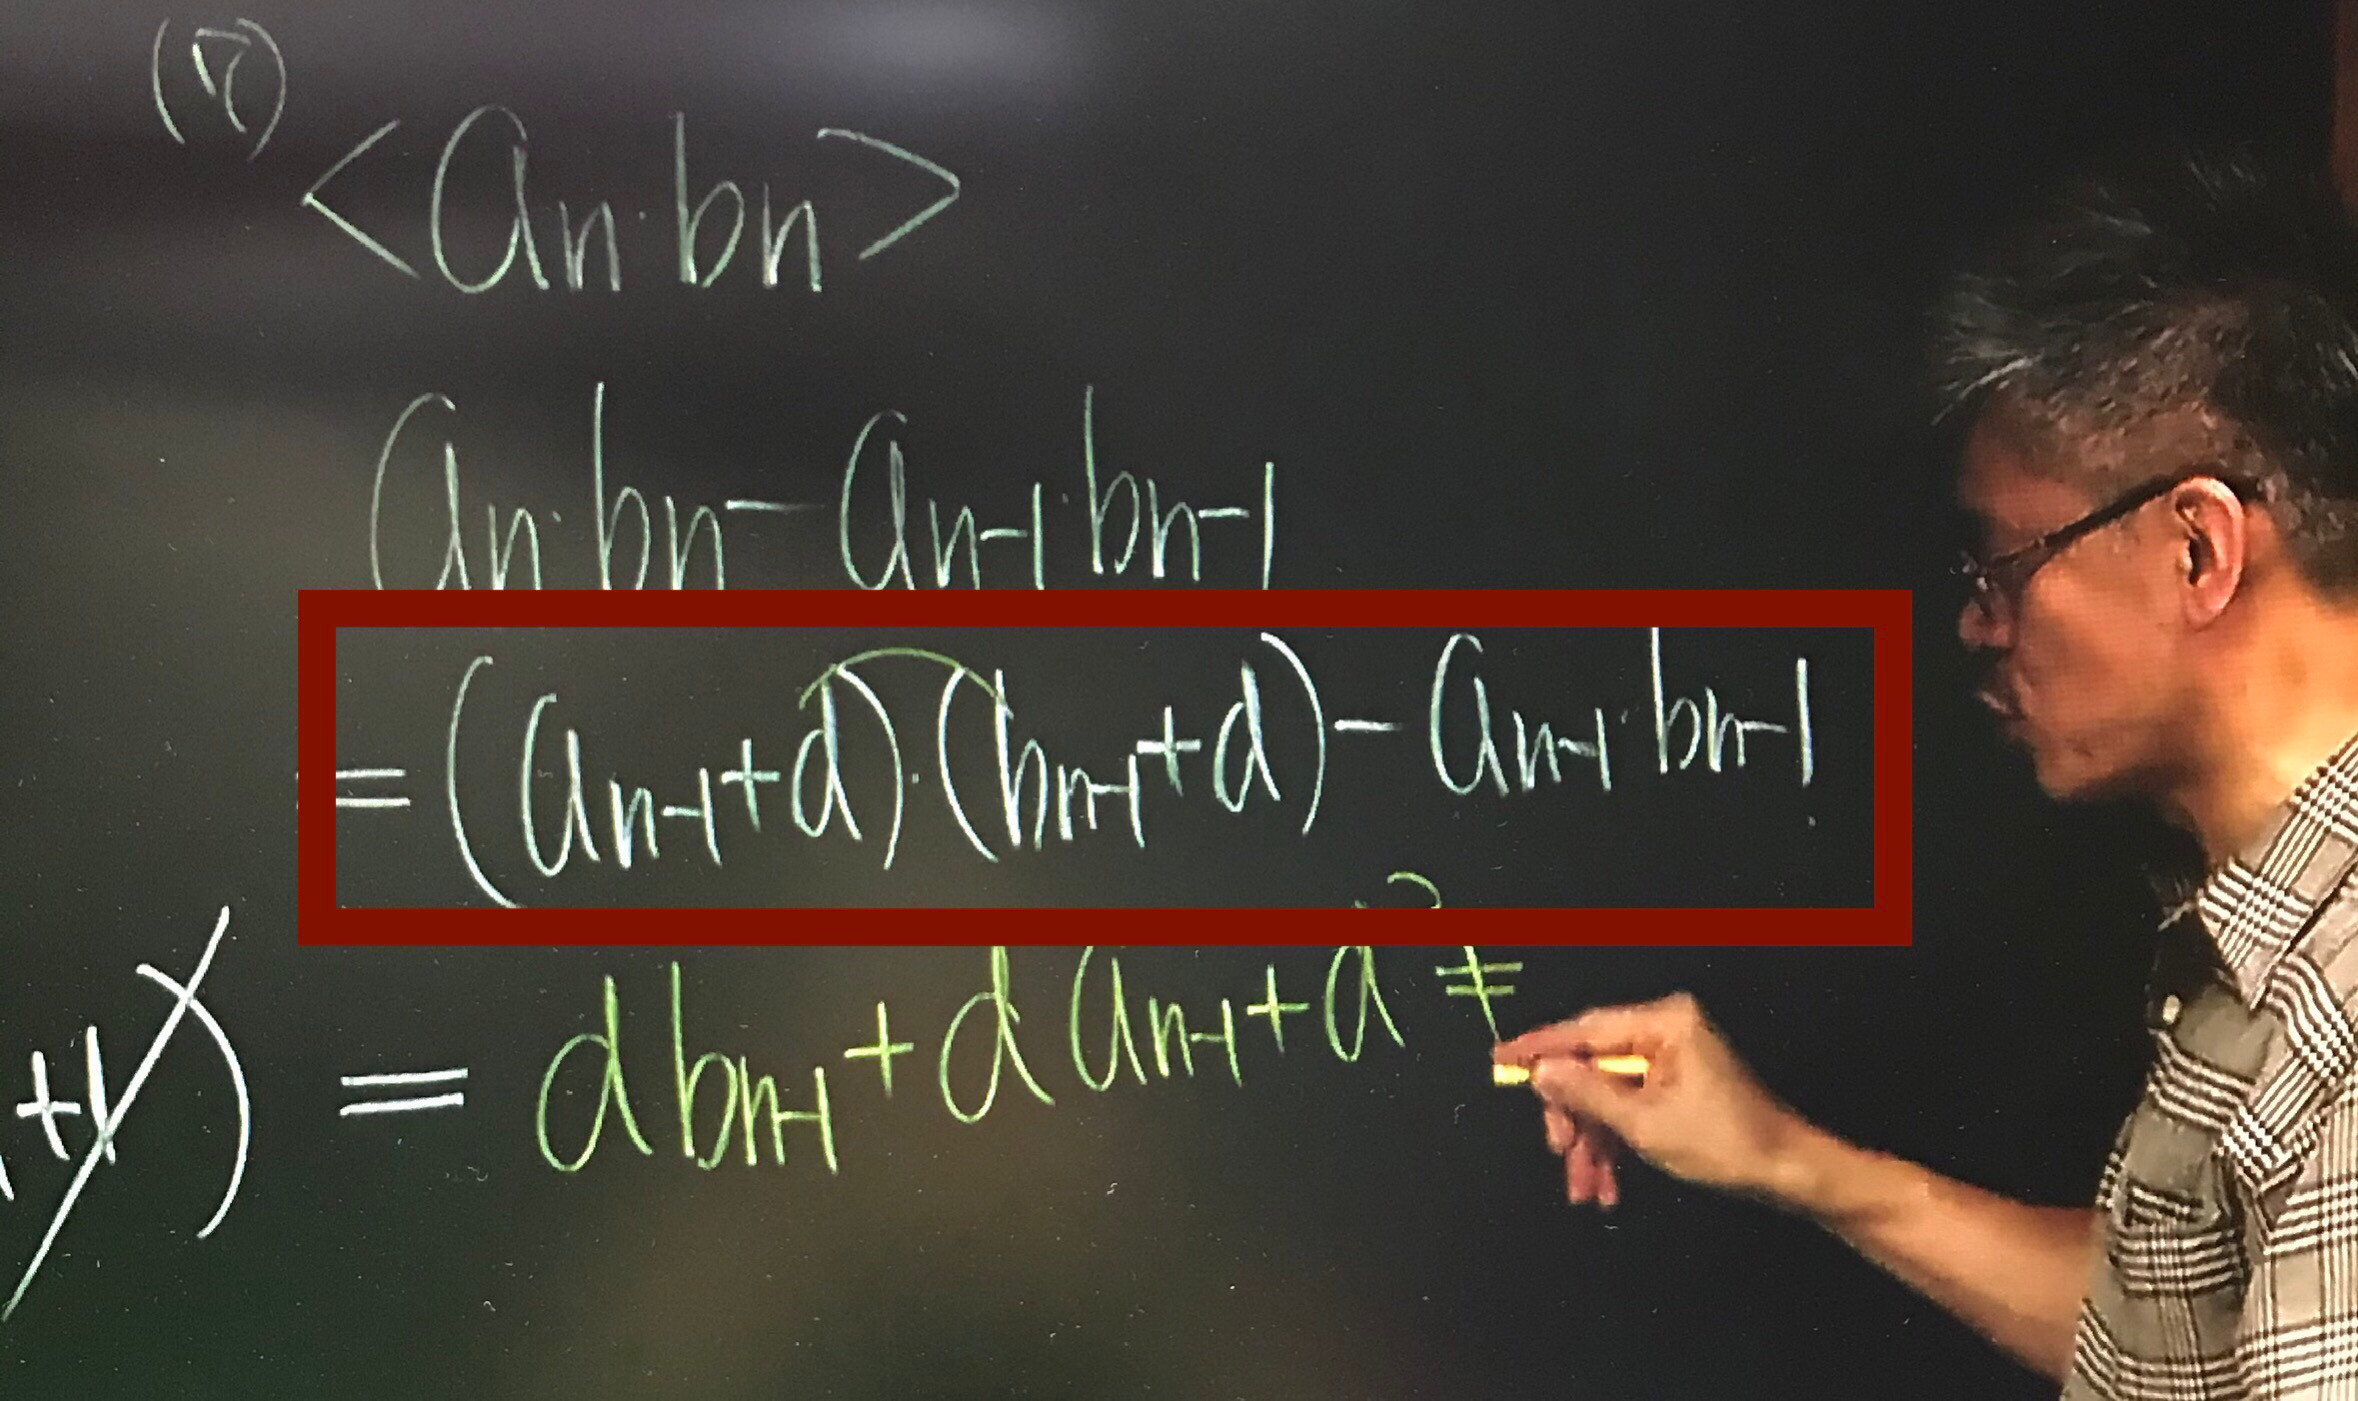 (ㄗ)
<an·bn>
an·bn-an-1·bn-1
=(an-1+d)·(bn-1+d)-an-1·bn-1
+1)
=dbn-1+dan-1+d²≠